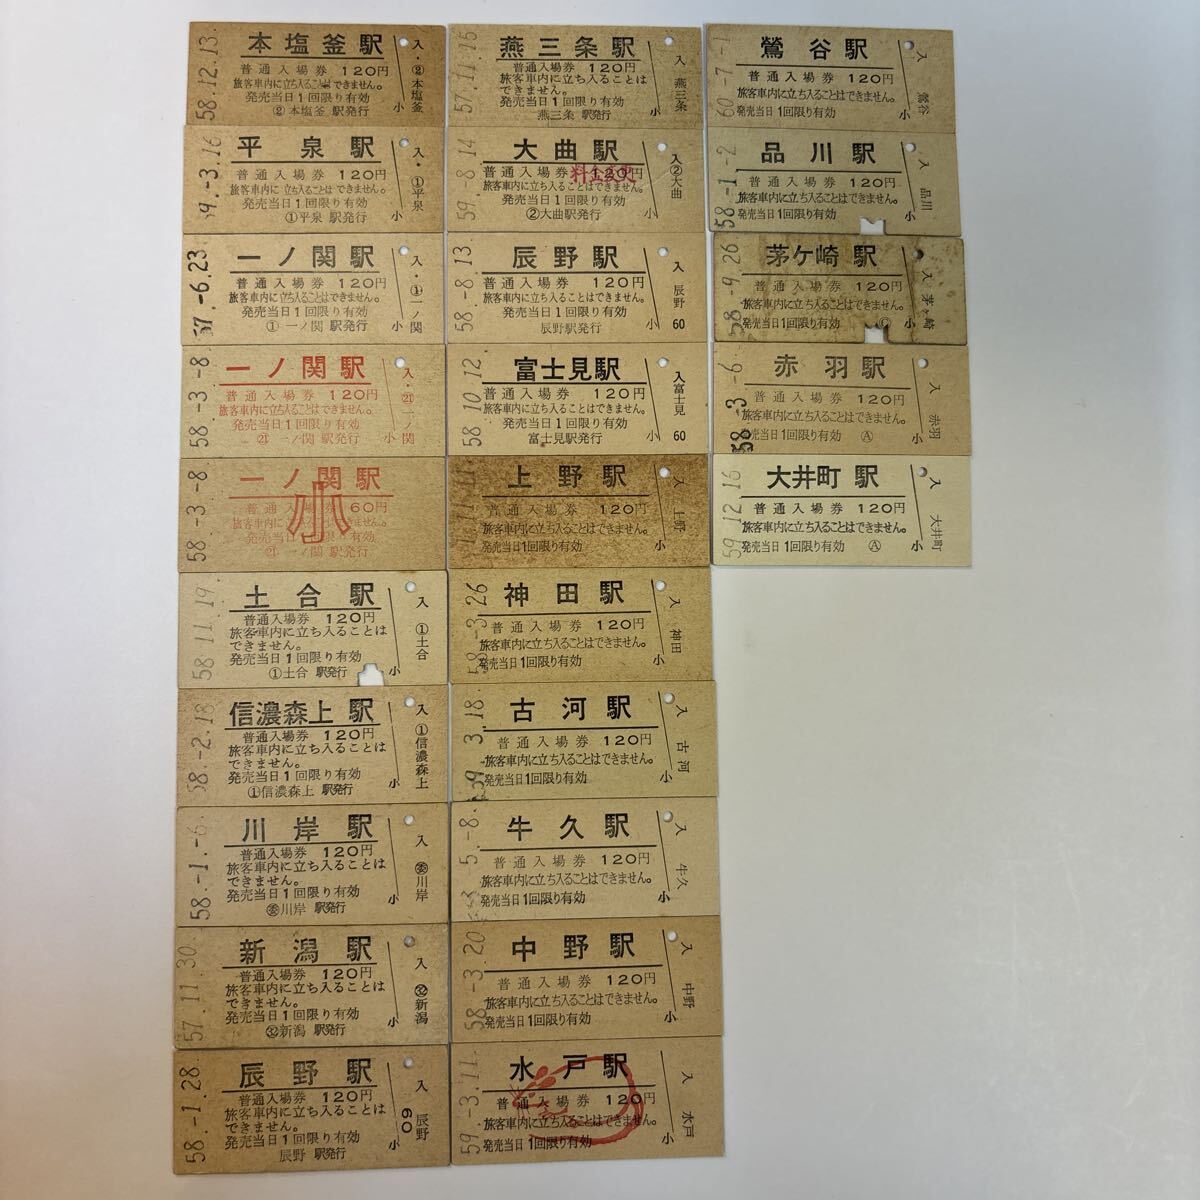 58.12.13.
本塩釜駅
普通入場券 120円
旅客車内に立ち入ることはできません。
発売当日1回限り有効
②本塩釜 駅発行
入・②本塩釜
小
59.-3.16
平泉駅
普通入場券 120円
旅客車内に立ち入ることはできません。
発売当日1回限り有効
①平泉 駅発行
入・①平泉
小
57.-6.23
一ノ関駅
普通入場券 120円
旅客車内に立ち入ることはできません。
発売当日1回限り有効
① 一ノ関 駅発行
入・①一ノ関
小
58.-3.-8
一ノ関駅
普通入場券 120円
旅客車内に立ち入ることはできません。
発売当日1回限り有効
㉑ 一ノ関 駅発行
入・㉑一ノ関
小
58.-3.-8
一ノ関駅
普通入場券 60円
旅客車内に立ち入ることはできません。
発売当日1回限り有効
㉑ 一ノ関 駅発行
小
58.11.19.
土合駅
普通入場券 120円
旅客車内に立ち入ることは
できません。
発売当日1回限り有効
①土合 駅発行
入 ①土合
小
58.-2.18
信濃森上駅
普通入場券 120円
旅客車内に立ち入ることは
できません。
発売当日1回限り有効
①信濃森上 駅発行
入 ①信濃森上
小
58.-1.-6.
川岸駅
普通入場券 120円
旅客車内に立ち入ることは
できません。
発売当日1回限り有効
㊀川岸 駅発行
入 川岸
小
57.11.30
新潟駅
普通入場券 120円
旅客車内に立ち入ることは
できません。
発売当日1回限り有効
㉜新潟 駅発行
入 ㉜新潟
小
58.-1.28.
辰野駅
普通入場券 120円
旅客車内に立ち入ることは
できません。
発売当日1回限り有効
辰野 駅発行
入 辰野
小
60
57.11.15
燕三条駅
普通入場券 120円
旅客車内に立ち入ることは
できません。
発売当日1回限り有効
燕三条 駅発行
入 燕三条
小
59.-8.14
大曲駅
普通入場券 120円
料金変更
旅客車内に立ち入ることはできません。
発売当日1回限り有効
②大曲駅発行
入②大曲
小
58.-8.13
辰野駅
普通入場券 120円
旅客車内に立ち入ることはできません。
発売当日1回限り有効
辰野駅発行
入 辰野
小 60
58.10.12
富士見駅
普通入場券 120円
旅客車内に立ち入ることはできません。
発売当日1回限り有効
富士見駅発行
入富士見
小 60
上野駅
普通入場券 120円
旅客車内に立ち入ることはできません。
発売当日1回限り有効
入 上野
小
58.-3.26
神田駅
普通入場券 120円
旅客車内に立ち入ることはできません。
発売当日1回限り有効
入 神田
小
59.3.18
古河駅
普通入場券 120円
旅客車内に立ち入ることはできません。
発売当日1回限り有効
入 古河
小
5.-8.
牛久駅
普通入場券 120円
旅客車内に立ち入ることはできません。
発売当日1回限り有効
入 牛久
小
58.-3.20
中野駅
普通入場券 120円
旅客車内に立ち入ることはできません。
発売当日1回限り有効
入 中野
小
59.-3.11.
水戸駅
普通入場券 120円
旅客車内に立ち入ることはできません。
発売当日1回限り有効
入 水戸
小
60.-7.-1
鶯谷駅
普通入場券 120円
旅客車内に立ち入ることはできません。
発売当日1回限り有効
入 鶯谷
小
58.-1.-2
品川駅
普通入場券 120円
旅客車内に立ち入ることはできません。
発売当日1回限り有効
入 品川
小
58.-9.26
茅ケ崎駅
普通入場券 120円
旅客車内に立ち入ることはできません。
発売当日1回限り有効 Ⓒ
入 茅ヶ崎
小
58.-3.-6
赤羽駅
普通入場券 120円
旅客車内に立ち入ることはできません。
発売当日1回限り有効 Ⓐ
入 赤羽
小
59.12.16
大井町駅
普通入場券 120円
旅客車内に立ち入ることはできません。
発売当日1回限り有効 Ⓐ
入 大井町
小